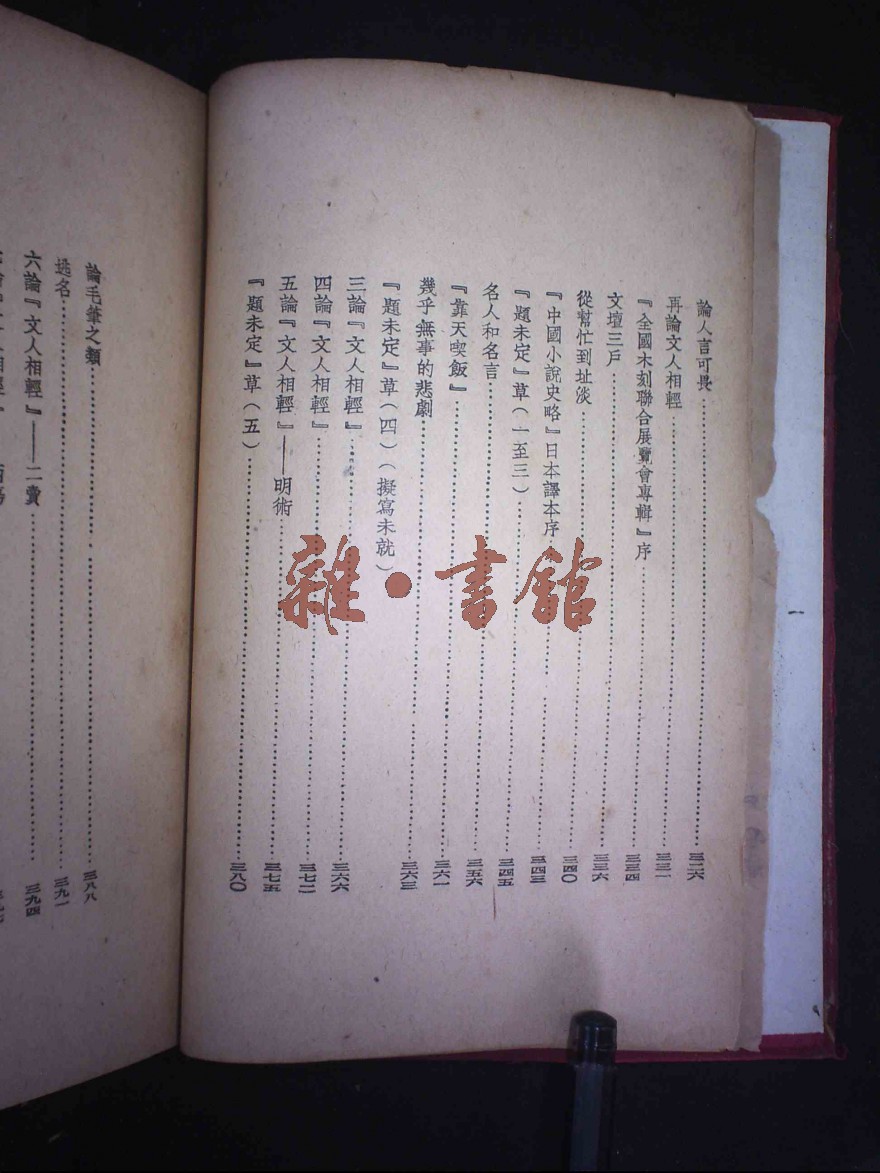 論人言可畏……三二六
再論文人相輕……三三一
『全國木刻聯合展覽會專輯』序……三三四
文壇三戶……三三六
從幫忙到址淡……三四〇
『中國小說史略』日本譯本序……三四三
『題未定』草（一至三）……三四五
名人和名言……三五六
『靠天喫飯』……三六一
幾乎無事的悲劇……三六三
『題未定』草（四）（擬寫未就）
三論『文人相輕』……三六六
四論『文人相輕』……三七二
五論『文人相輕』——明術……三七五
『題未定』草（五）……三八〇
論毛筆之類……三八八
逃名……三九一
六論『文人相輕』——二賣……三九四
雜·書館